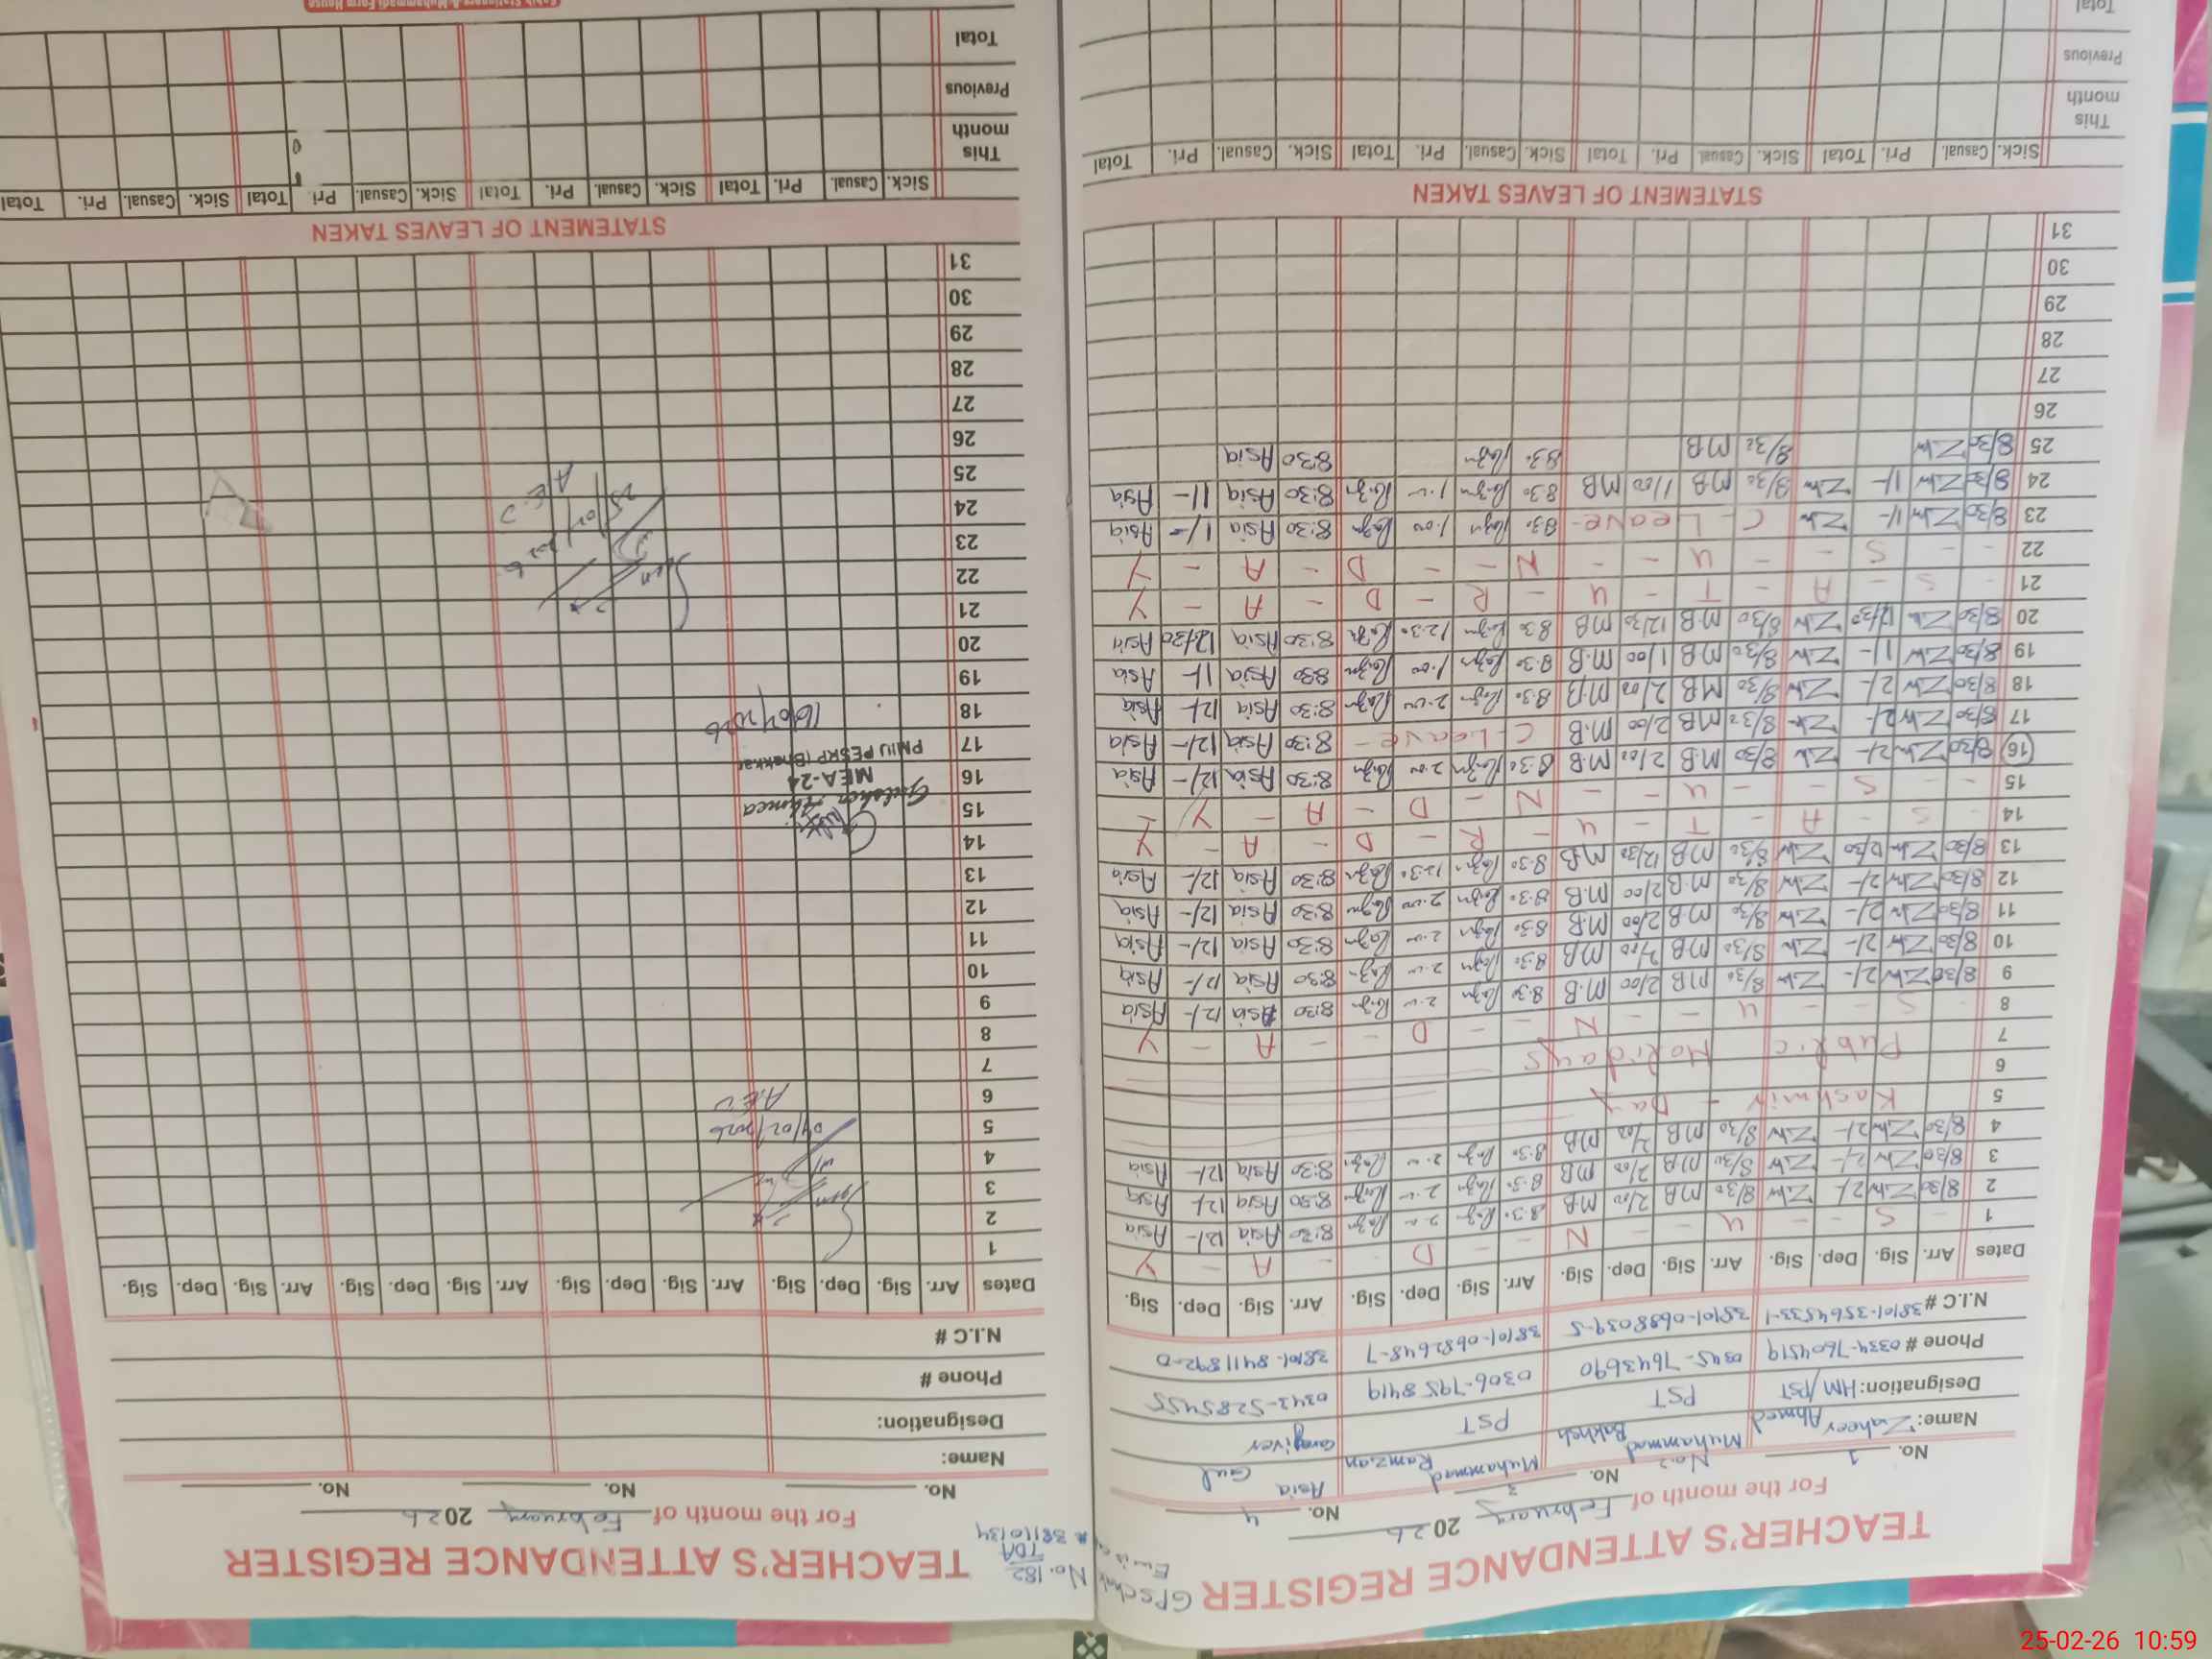 TEACHER'S ATTENDANCE REGISTER
For the month of February 2026
No. 1 No. 2 No. 3 No. 4
Name: Zaheer Ahmed Muhammad Bakhsh Muhammad Ramzan Asia Gul
Designation: HM/PST PST PST caregiver
Phone # 0334-7604519 0345-7643690 0306-7958419 0343-5285455
N.I.C # 38101-3564533-1 38101-0688039-5 38101-0682648-7 38101-8411892-0
Dates Arr. Sig. Dep. Sig. Arr. Sig. Dep. Sig. Arr. Sig. Dep. Sig. Arr. Sig. Dep. Sig.
1 S - - U - - N - - D - - A - Y
2 8/30 Zw 2/- Zw 8/30 MB 2/00 MB 8:30 2:00 8:30 Asia 12/- Asia
3 8/30 Zw 2/- Zw 8/30 MB 2/00 MB 8:30 2:00 8:30 Asia 12/- Asia
4 8/30 Zw 2/- Zw 8/30 MB 2/00 MB 8:30 2:00 8:30 Asia 12/- Asia
5 Kashmir - Day
6
7 Public Holidays
8 S - - U - - N - - D - - A - Y
9 8/30 Zw 2/- Zw 8/30 MB 2/00 M.B 8:30 2:00 8:30 Asia 12/- Asia
10 8/30 Zw 2/- Zw 8/30 MB 2/00 MB 8:30 2:00 8:30 Asia 12/- Asia
11 8/30 Zw 2/- Zw 8/30 MB 2/00 M.B 8:30 2:00 8:30 Asia 12/- Asia
12 8/30 Zw 2/- Zw 8/30 MB 2/00 M.B 8:30 2:00 8:30 Asia 12/- Asia
13 8/30 Zw 12/30 Zw 8/30 MB 12/30 MB 8:30 12:30 8:30 Asia 12/- Asia
14 S - A - T - U - R - D - A - Y
15 - - S - - U - - N - D - A - Y
16 8/30 Zw 2/- Zw 8/30 M.B 2/00 MB 8:30 2:00 8:30 Asia 12/- Asia
17 8/30 Zw 2/- Zw 8/30 MB 2/00 M.B C-Leave - 8:30 Asia 12/- Asia
18 8/30 Zw 2/- Zw 8/30 MB 2/00 MB 8:30 2:00 8:30 Asia 12/- Asia
19 8/30 Zw 1/- Zw 8/30 MB 1/00 M.B 8:30 1:00 8:30 Asia 1/- Asia
20 8/30 Zw 12/30 Zw 8/30 M.B 12/30 MB 8:30 12:30 8:30 Asia 12/30 Asia
21 - S - A - T - U - R - D - A - Y
22 - - S - - U - - N - - D - A - Y
23 8/30 Zw 1/- Zw C - Leave - 8:30 1:00 8:30 Asia 1/- Asia
24 8/30 Zw 1/- Zw 8/30 MB 1/00 MB 8:30 1:00 8:30 Asia 1/- Asia
25 8/30 Zw 8/30 MB 8:30 8:30 Asia
26
27
28
29
30
31
STATEMENT OF LEAVES TAKEN
Sick. Casual. Pri. Total Sick. Casual. Pri. Total Sick. Casual. Pri. Total Sick. Casual. Pri. Total
This month
Previous
Total
GPS Chak No. 182 TDA
Emis 38110134
TEACHER'S ATTENDANCE REGISTER
For the month of February 2026
No. No. No.
Name:
Designation:
Phone #
N.I.C #
Dates Arr. Sig. Dep. Sig. Arr. Sig. Dep. Sig. Arr. Sig. Dep. Sig. Arr. Sig. Dep. Sig.
1
2
3
4
5 04/02/2026
6 A.E.O
7
8
9
10
11
12
13
14
15 Gulsher Ahmed
16 MEA-24
17 PMIU PESRP (Bhakkar
18 16/04/2026
19
20
21
22
23
24
25 A.E.O
26
27
28
29
30
31
STATEMENT OF LEAVES TAKEN
Sick. Casual. Pri. Total Sick. Casual. Pri. Total Sick. Casual. Pri. Total Sick. Casual. Pri. Total
This month
Previous
Total
25-02-26 10:59